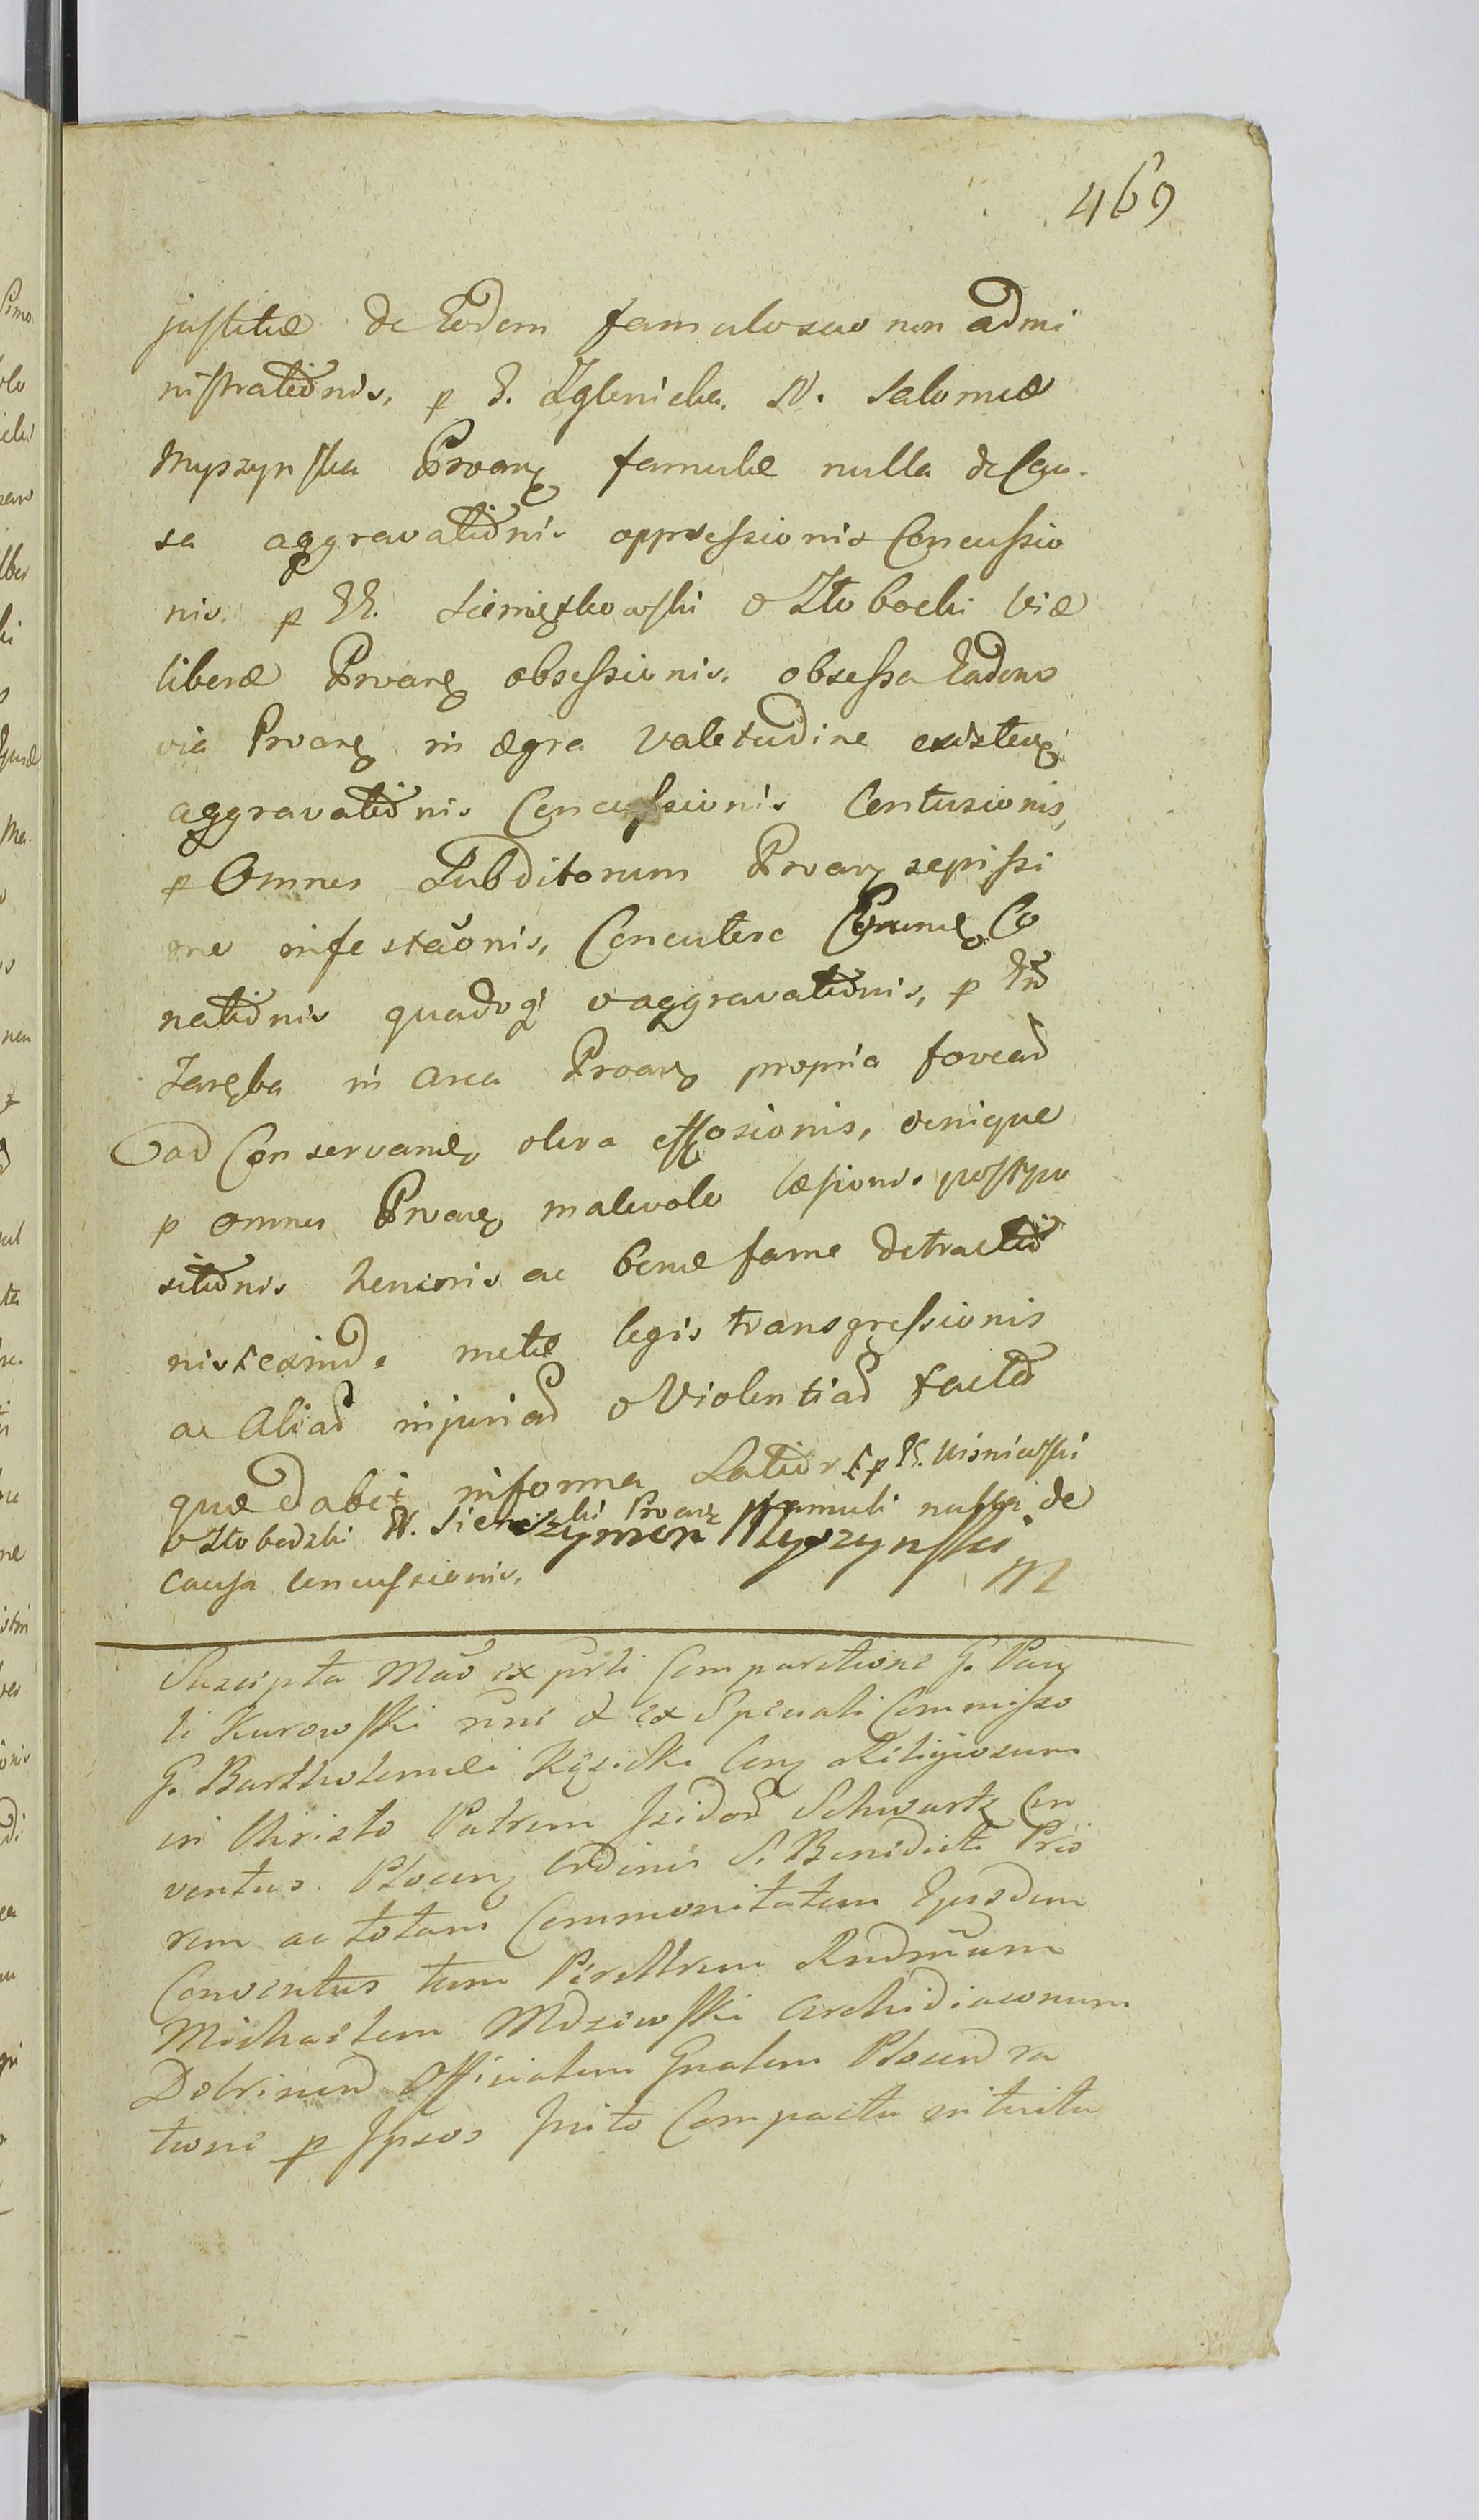 469
justitiæ de Eodem famulo suo non admi
nistrationis, p E. Zglenicka, N. Salomeæ
Myszynska Prvarũ famulæ nulla de Cau-
sa aggravationis oppressionis Concussio
nis. p EE. Siemiątkowski & Złobocki viæ
liberæ Prvarũ obsessionis. obsessa Eadem
via Prvarũ in ægra valetudine existen
aggravationis Concussionis Contusionis,
p Omnes Subditorum Prvarũ sepissi
me infestãonis, Concutere
nationis quadq & aggravationis, p
Zaręba in area Prvarũ propria foveaȓ
ad Conservanđ olera effosionis, denique
p omnes Prvarũ malevole læsionis postpo
sitionis honoris ac bonæ fame detractio
nis exinde metæ legis transgressionis
ac Aliaȓ injuriaȓ & Violentiaȓ factaȓ
quæ dabit in forma Latiori p E. Wisniewski
& Złobodzki N. Prvarũ famuli nulla de
Szymon Myszynski
causa concussionis.
m
Suscipta Mão ex psti Comparitione G. Pau
li Kurowski mne & ex Speciali Commisso
G. Bartholemei Kęsicki Religiosum
in Christo Patrem Isidoȓ Schwartz Con
ventus Plocen Ordinis S. Benedicti Prio
rem ac totam Commonitatem Ejusdem
Conventus tum Perillrem Rndmum
Michaelem Mdzewski Archidiaconum
Dobrinenȓ Officialem Gnalem Plocenȓ ra
tione p Ipsos Inito Compactu intuitu